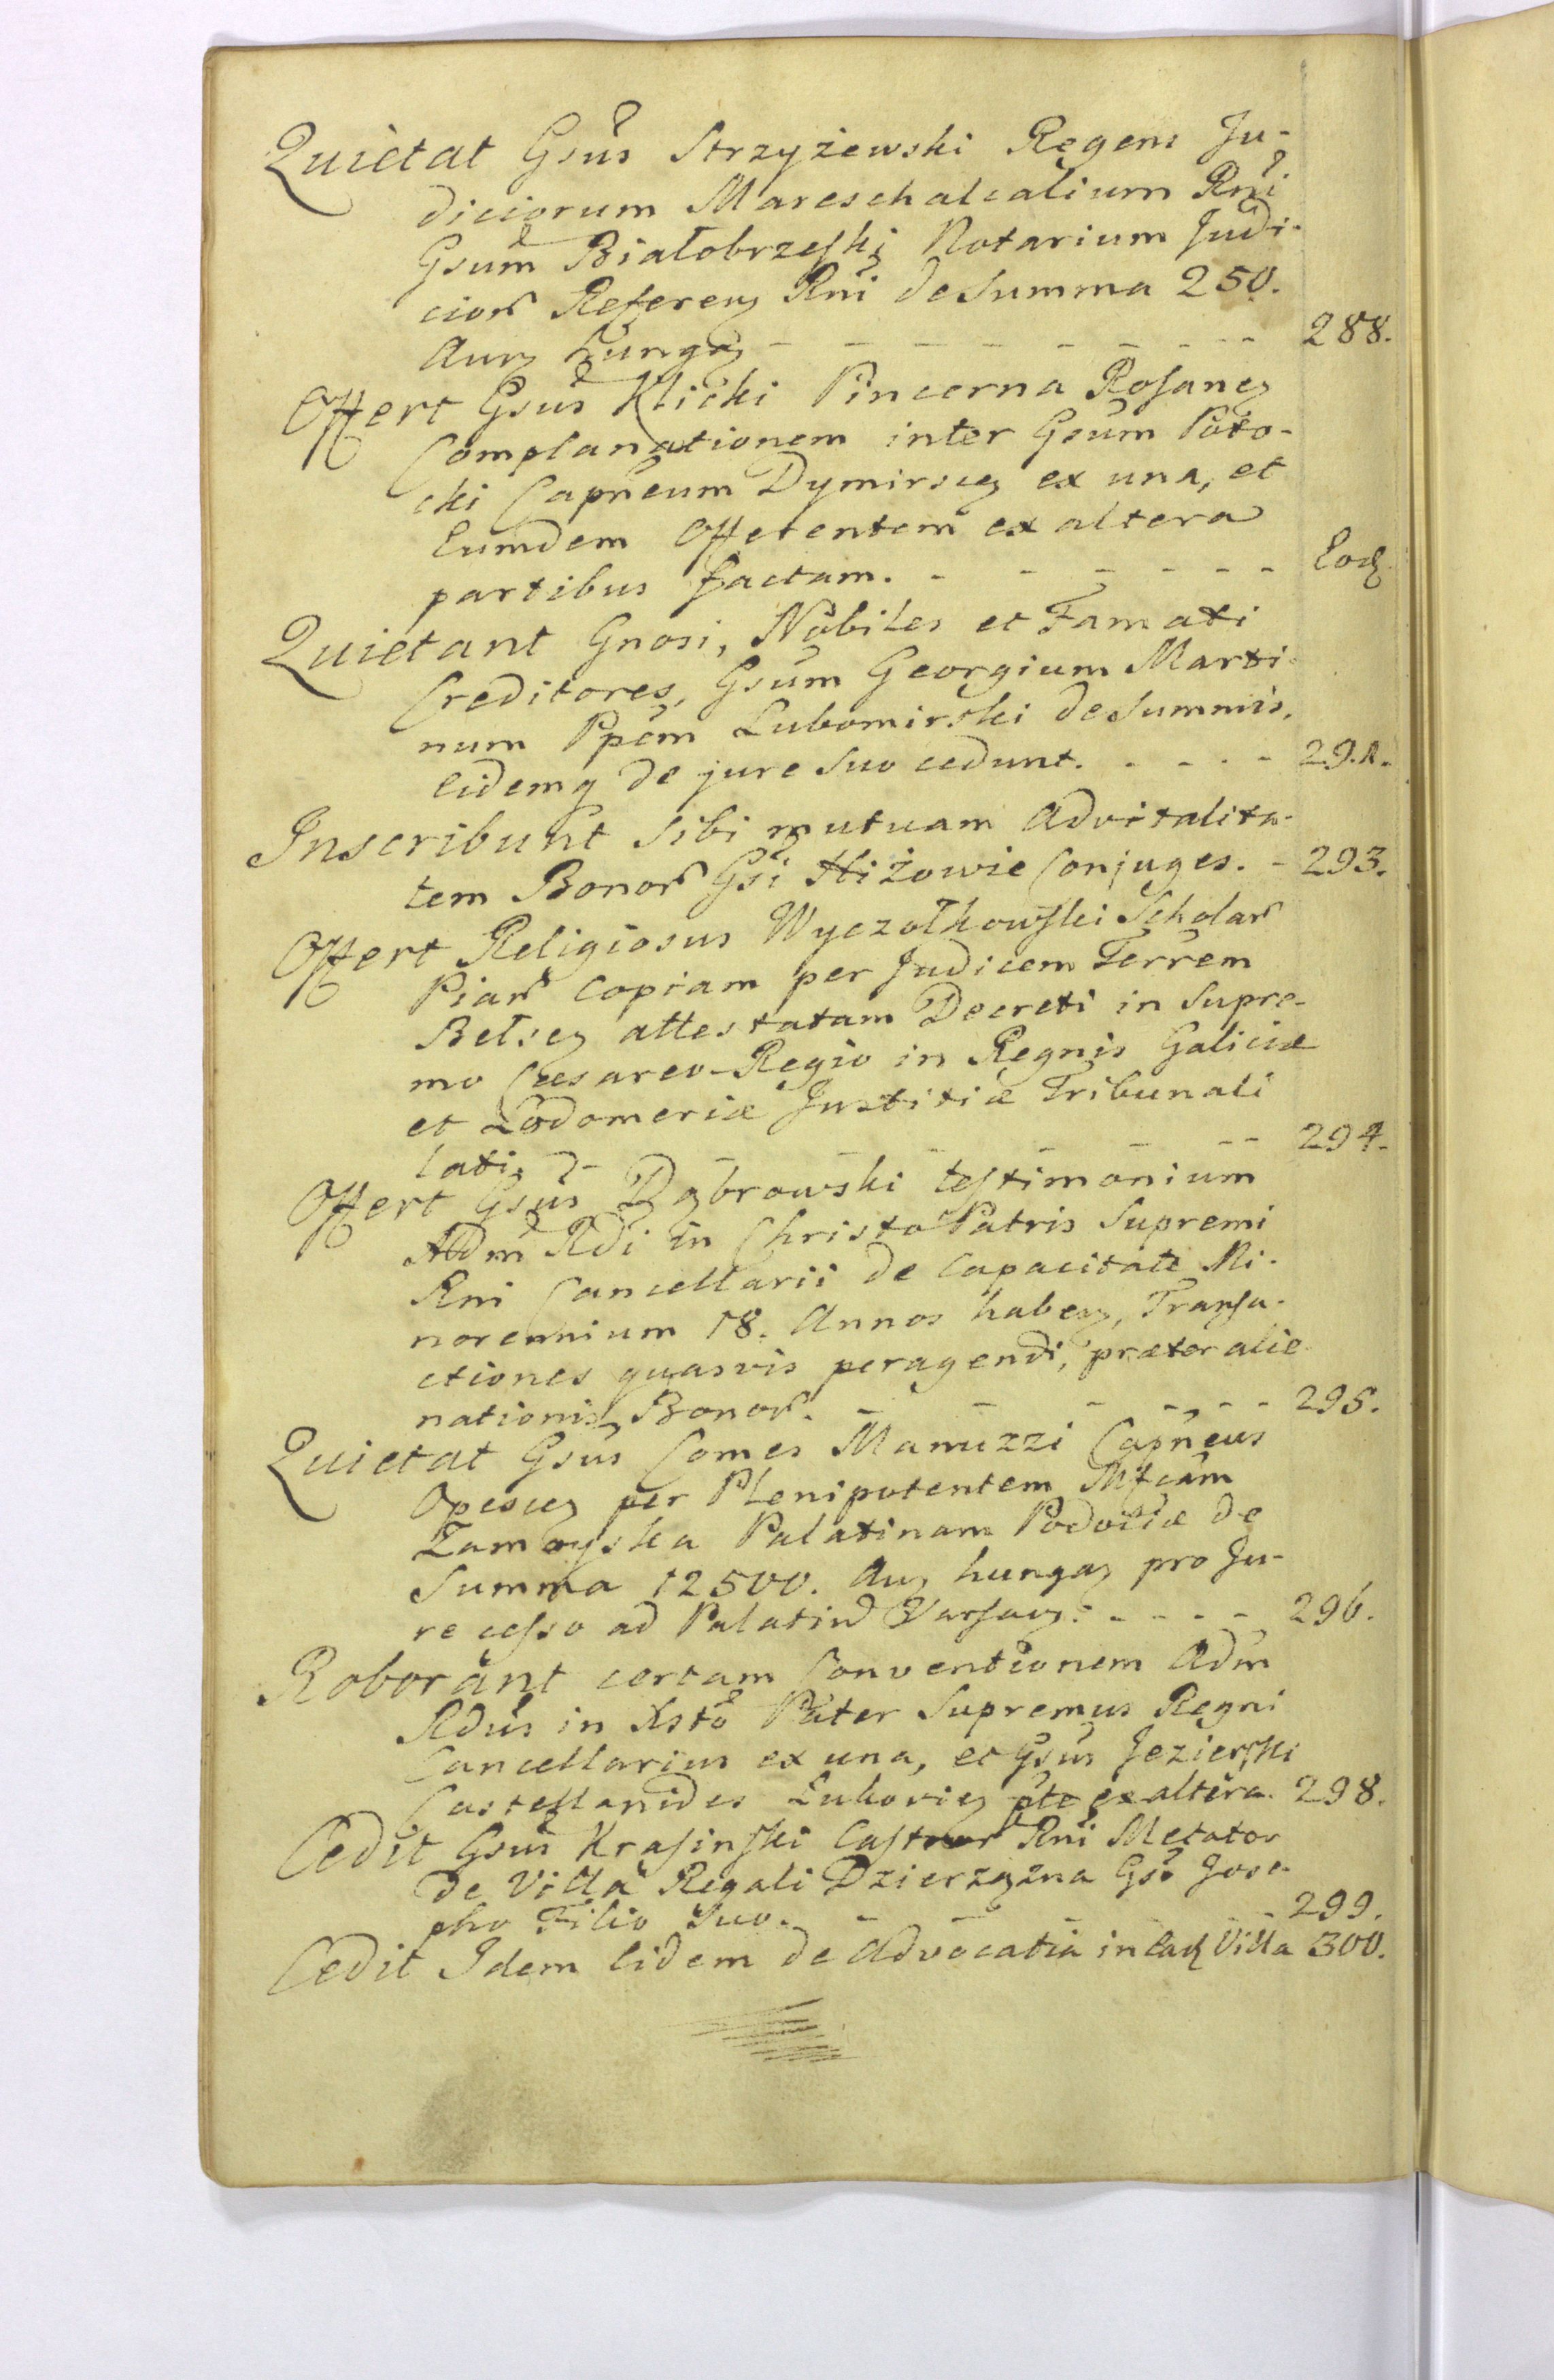 Quietat Gsus Strzyżewski Regens Ju-
diciorum Mareschalcalium Rni
Gsum Białobrzeski Notarium Judi-
cior Referen Rni de Summa 250.
Aur hungar - - - - - - - - 288.
Offert Gsus Klicki Pincerna Rosanen
Complanationem inter Gsum Poto-
cki Capneum Dymirscen ex una, et
Eumdem Offerentem ex altera
partibus factam. - - - - - - - Eod
Quietant Gnosi, Nobiles et Famati
Creditores, Gsum Georgium Marti-
num Ppem Lubomirski de Summis,
Eidemq de jure suo cedunt. - - - - - 291.
Inscribunt sibi mutuam Advitalita-
tem Bonor Gsi Hiżowie Conjuges. - 293.
Offert Religiosus Wyczołkowski Scholar
Piar Copiam per Judicem Terrem
Belscen attestatam Decreti in Supre-
mo Cæsareo-Regio in Regnis Galiciæ
et Lodomeriæ Justitiæ Tribunali
lati, - - - - - - - 294.
Offert Gsus Dąbrowski testimonium
Adm Rdi in Christo Patris Supremi
Rni Cancellarii de Capacitate Mi-
norennium 18. Annos haben, Transa-
ctiones quasvis peragendi, præter alie-
nationis Bonor. - - - - - - 295.
Quietat Gsus Comes Manuzzi Capneus
Opescen per Plenipotentem Mfcam
Zamoyska Palatinam Podoliæ de
Summa 12500. Aur hungar pro Ju-
re cesso ad Palatin Varsav. - - - - - 296.
Roborant certam Conventionem Adm
Rdus in Xsto Pater Supremus Regni
Cancellarius ex una, et Gsus Jezierski
Castellanides Lukovien pte ex altera. 298.
Cedit Gsus Krasinski Castror Rni Metator
de Villa Regali Dzierzązna Gso Jose-
pho Filio Suo. - - - - - 299.
Cedit Idem Eidem de Advocatia in ead Villa 300.